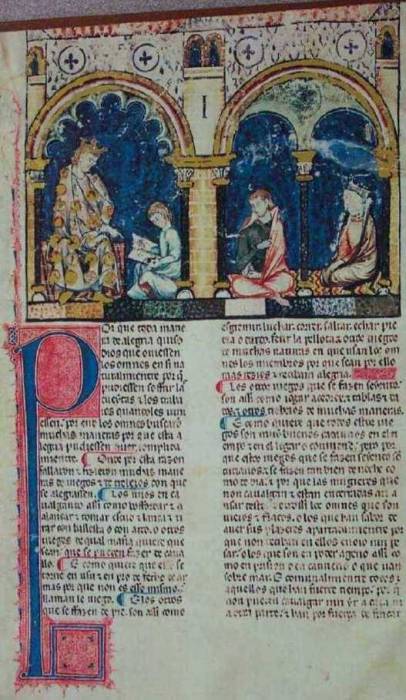 I
Por que toda mane
ra de alegria quiso
dios que ouiessen
los omnes en si na
tural mente por q
pudiessen soffrir las
cueytas & los traba
ios quando les uini
essen. por end los omnes buscaron
muchas maneras por que esta a
legria pudiessen auer complida
miente.
Onde por esta razon
fallaron & fizieron muchas mane
ras de iuegos & de trebeios con que
se alegrassen.
Los unos en ca
ualgando assi como bofordar & a
alançar & tomar escud & lança & ti
rar con ballesta o con arco. o otros
iuegos de qual manera quiere que
sean que se pueden fazer de caua
llo.
E como quiere que ello se
torne en usu & en pro de fecho de ar
mas por que non es esso mismo.
llaman le iuego.
E los otros
que se fazen de pie. son assi como
esgremir. luchar. correr. saltar. echar pie
dra o dardo. ferir la pellota. & otros iuegos
de muchas naturas en que usan los om
nes los miembros por que sean por ello
mas rezios & reciban alegria.
Los otros iuegos que se fazen seyendo.
son assi como iogar acedrex & tablas & da
dos. & otros trebeios de muchas maneras.
E como quiere que todos estos iue
gos son muy buenos cada unos en el
tiempo & en el logar o conuienen. pero por
que estos iuegos que se fazen seyendo son
cutianos. & se fazen tan bien de noche co
mo de dia. & por que las mugieres que
non caualgan & estan encerradas an a
usar desto. & otrossi los omnes que son
uieios & flacos. o los que han sabor de
auer sus plazeres apartadamiente por
que non reciban en ellos enoio nin pe
sar. o los que son en poder ageno assi co
mo en prision o en catiuerio o que uan
sobre mar. E comunalmiente todos
aquellos que han fuerte tiempo. por q
non pueden caualgar nin yr a caça ni
a otra parte. & han por fuerça de fincar